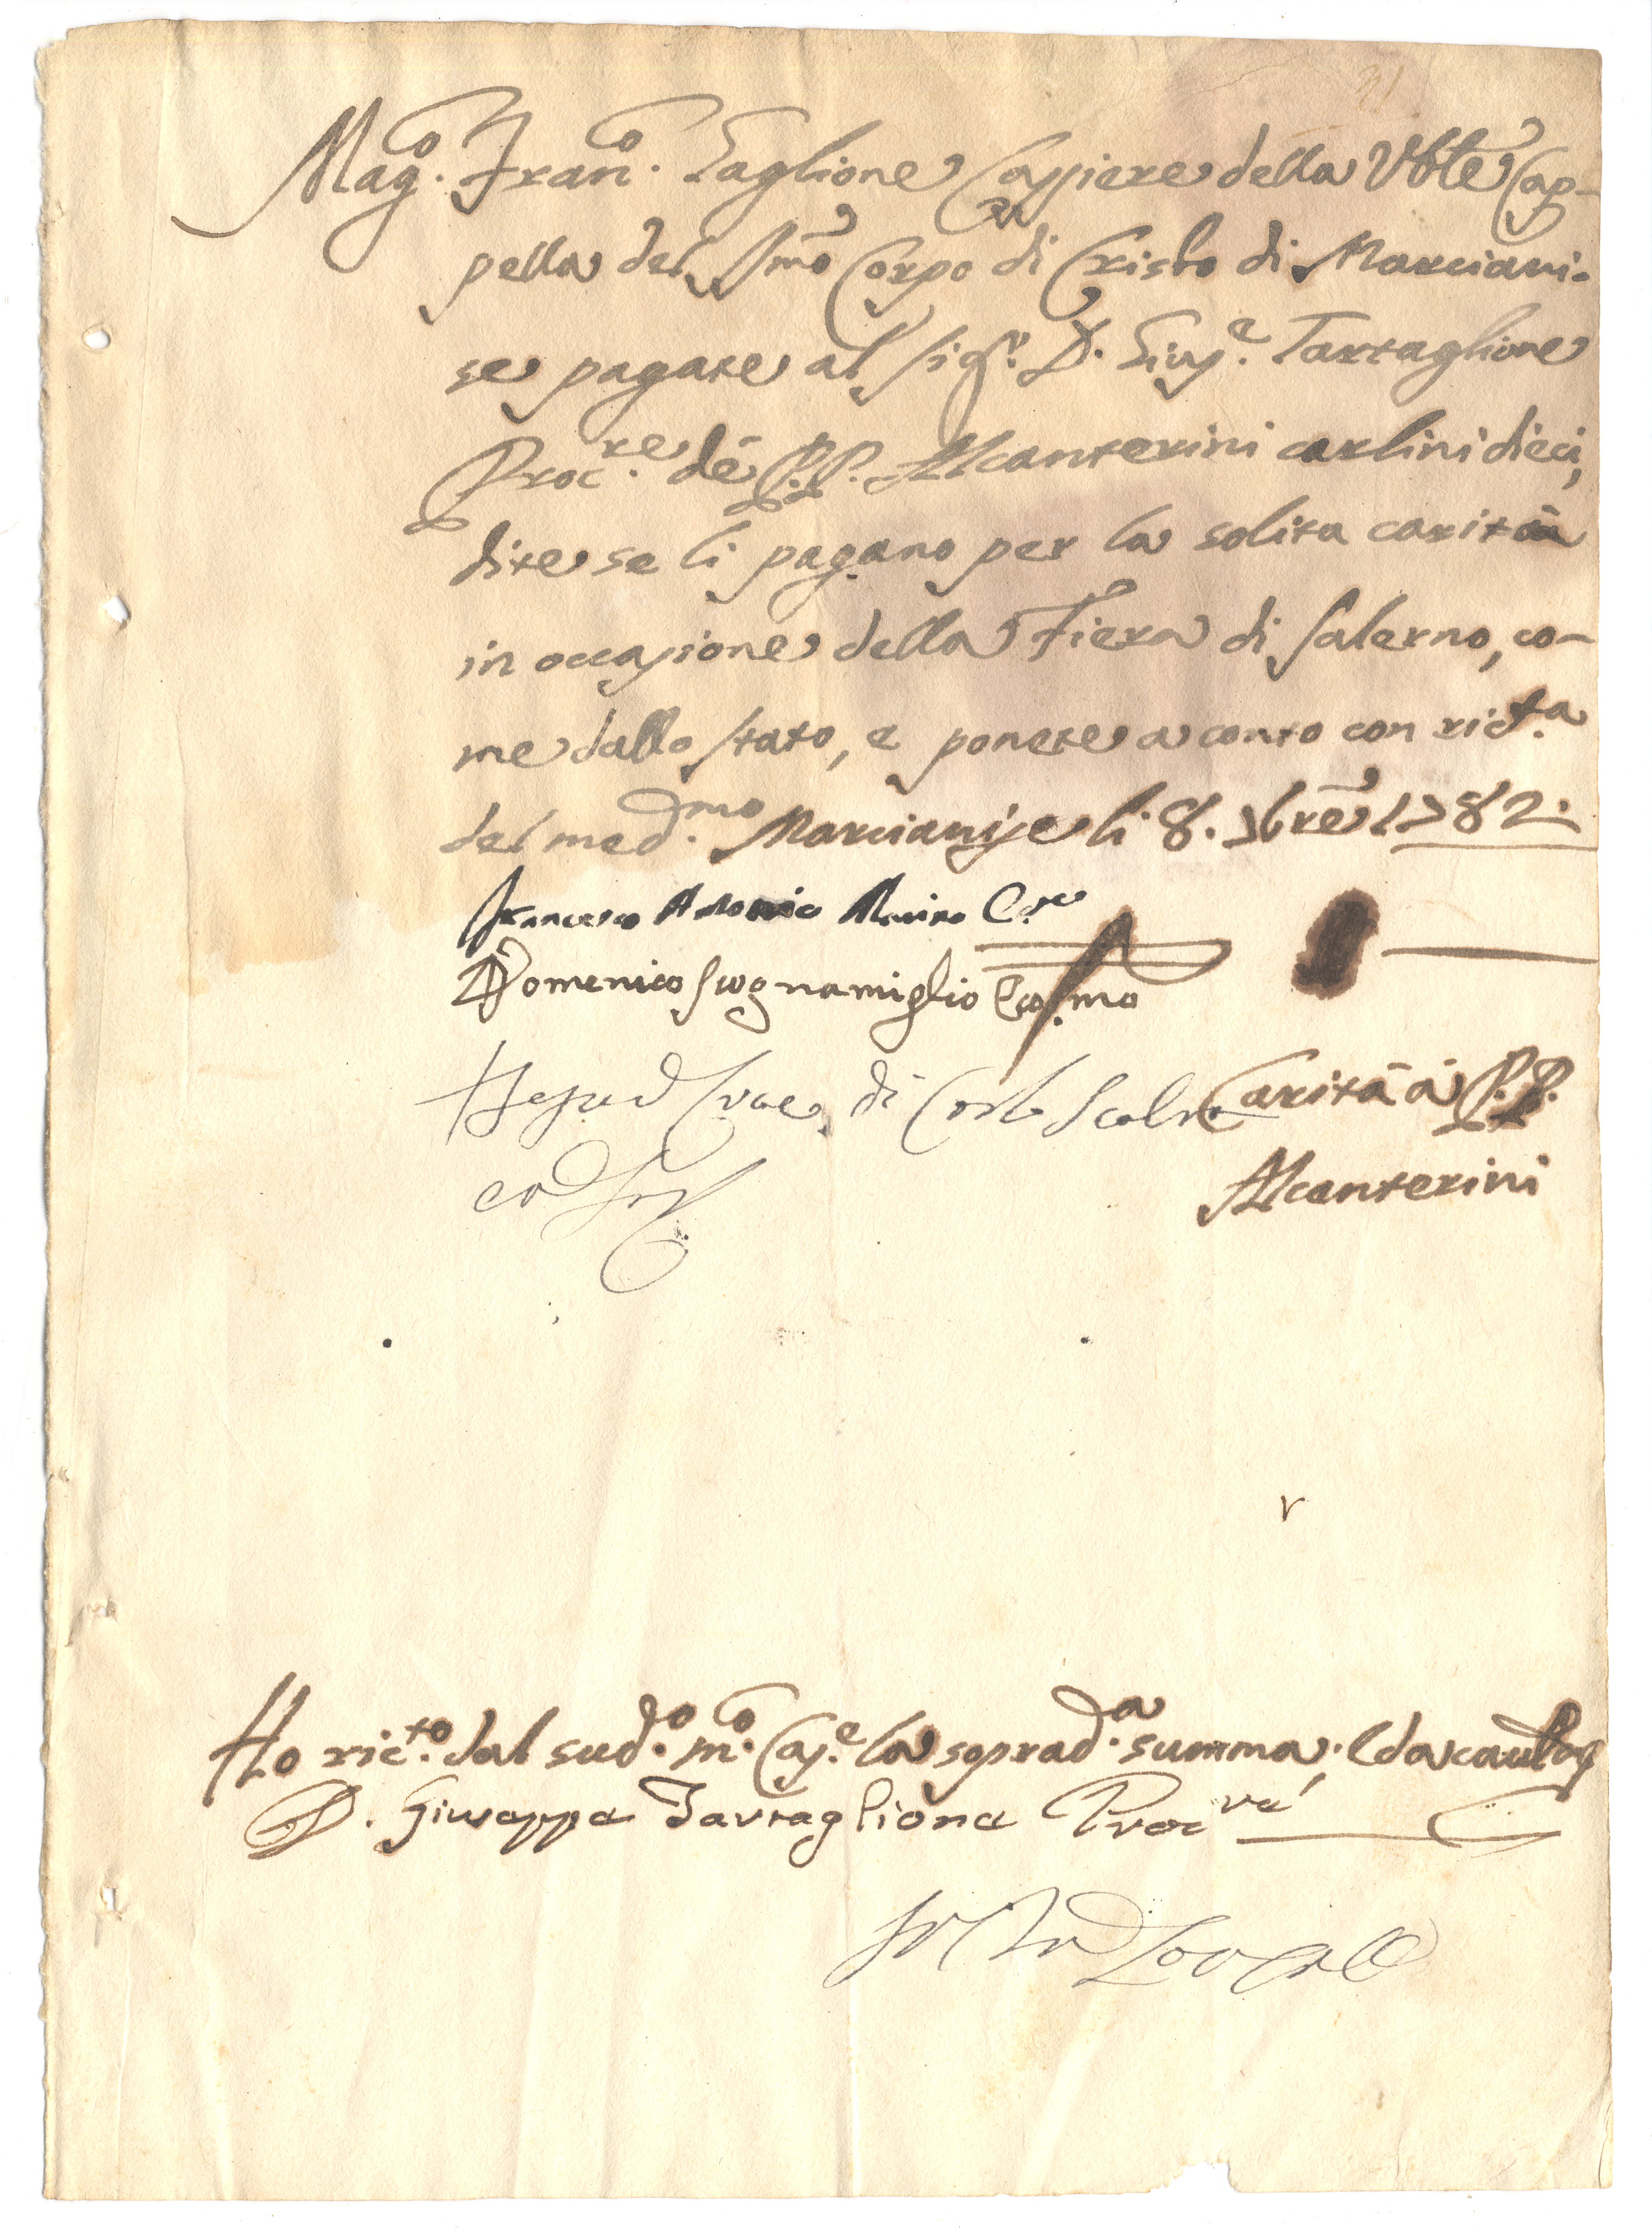 21
Mag.co Fran.co Taglione Cassiere della Vble Cap-
pella del SSmo Corpo di Cristo di Marciani-
se pagate al Sig.r D. Gius.e Tartaglione
Proc.re de P.P. Alcanterini carlini dieci,
dite se li pagano per la solita carità
in occasione della Fiera di Salerno, co-
me dallo stato, e ponete a conto con ric.ta
del med.mo Marcianise li 8. 7bre 1782.
Francesco Antonio Ec.re
Domenico Scognamiglio Eco.mo
Segno di Croce di
Carità a P.P.
Alcanterini
Ho ric.to dal sud.o m.co Cas.e la soprad.a summa,
D. Giuseppe Tartaglione Proc.re